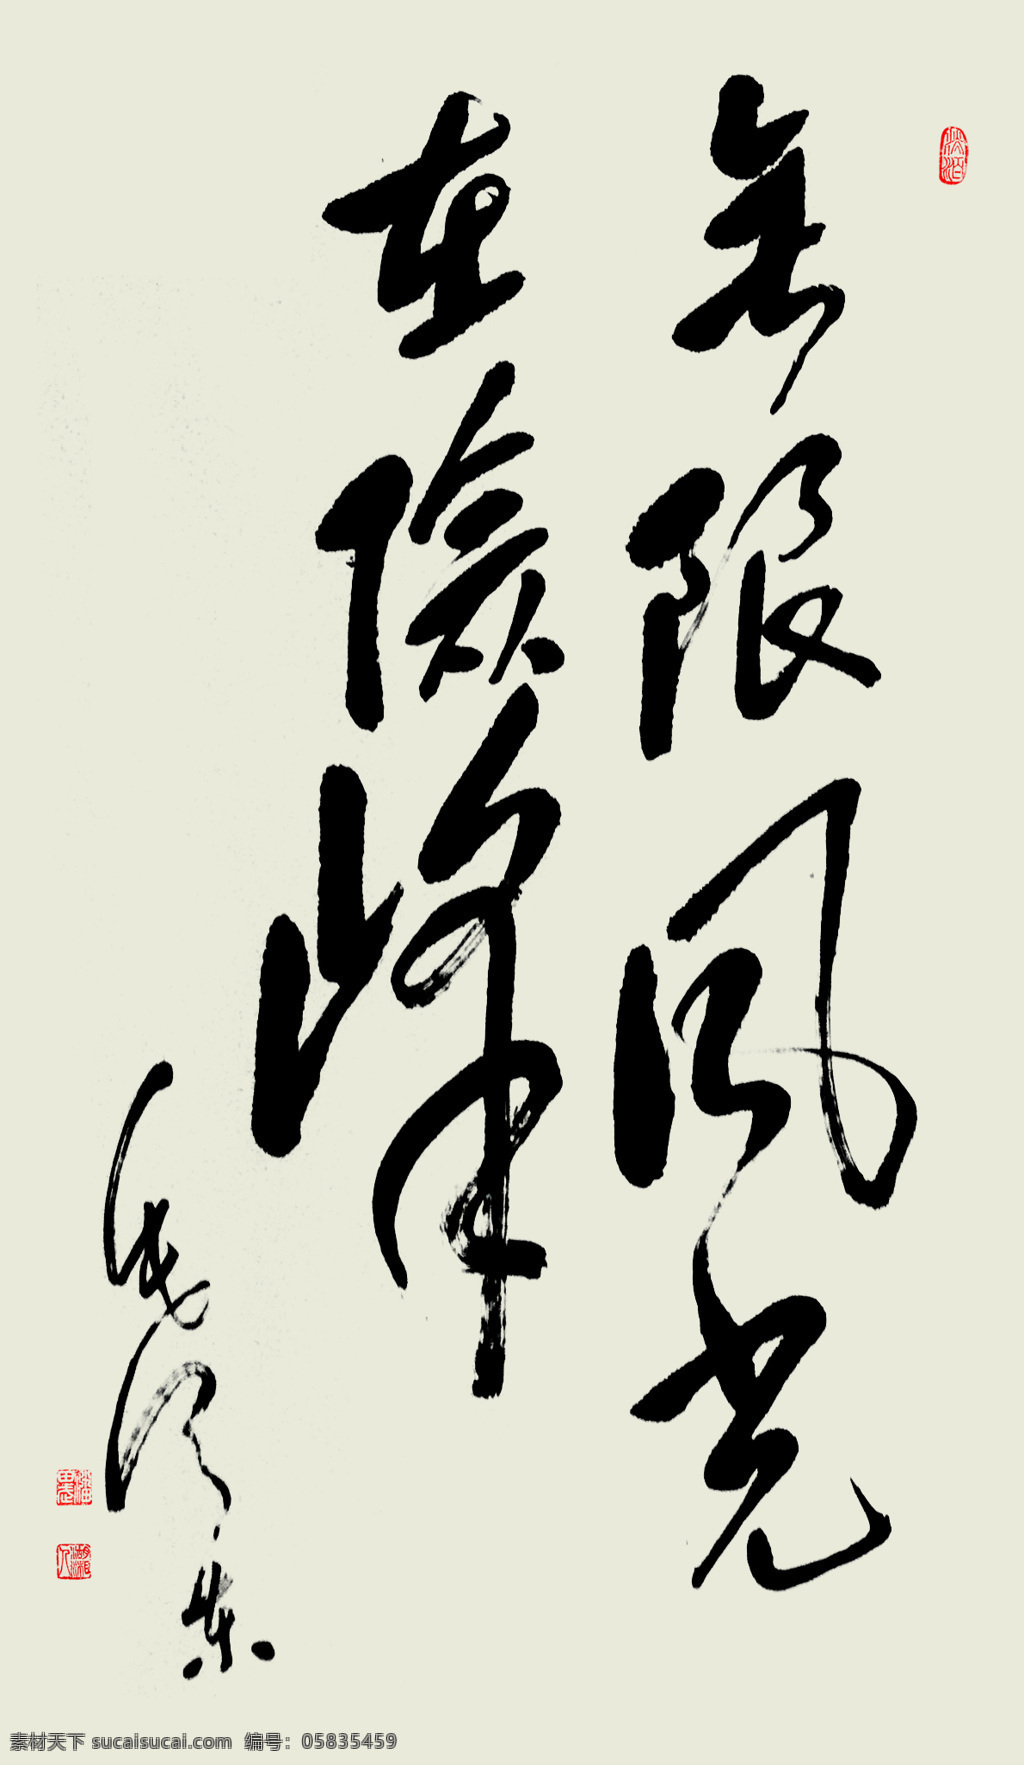 无限风光
在险峰
毛泽东
素材天下 sucaisucai.com 编号：05835459